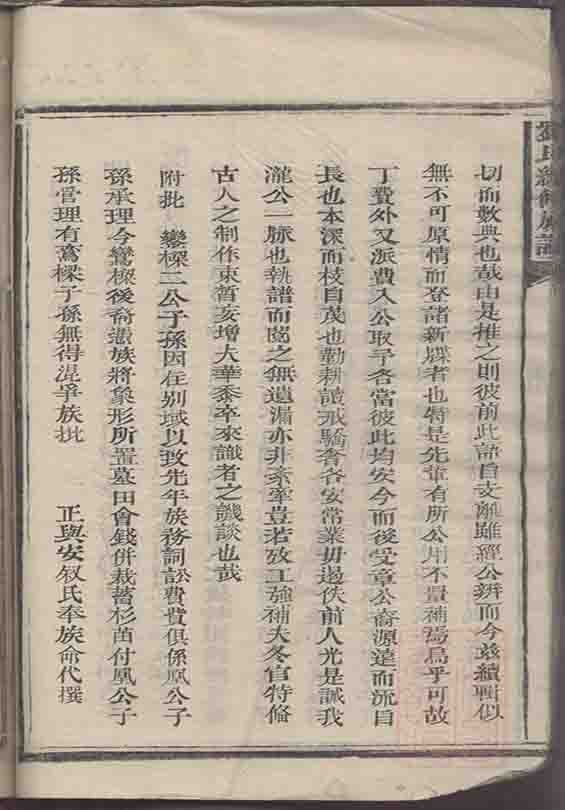 劉氏續修族譜
切而數典也哉由是推之則彼前此語自支離雖經公辨而今茲續輯似
無不可原情而登諸新牒者也特是先輩有所公用不量補焉烏乎可故
丁費外又派費入公取予各當彼此均安今而後受章公裔源遠而流自
長也本深而枝自茂也勤耕讀戒驕奢各安常業毋過佚前人光是誠我
瀧公一脉也執譜而閱之無遺漏亦非牽豈若攷工強補夫冬官特倫
古人之制作束晳亥增大華黍卒來識者之譏談也哉
附批 鸞樑二公子孫因在别域以致先年族務詞訟費費俱係鳳公子
孫承理今鸞樑後裔憑族將象形所置墓田會錢併栽蓄杉苗付鳳公子
孫管理有鸞樑子孫無得混爭族批 正與安叙氏奉族命代撰